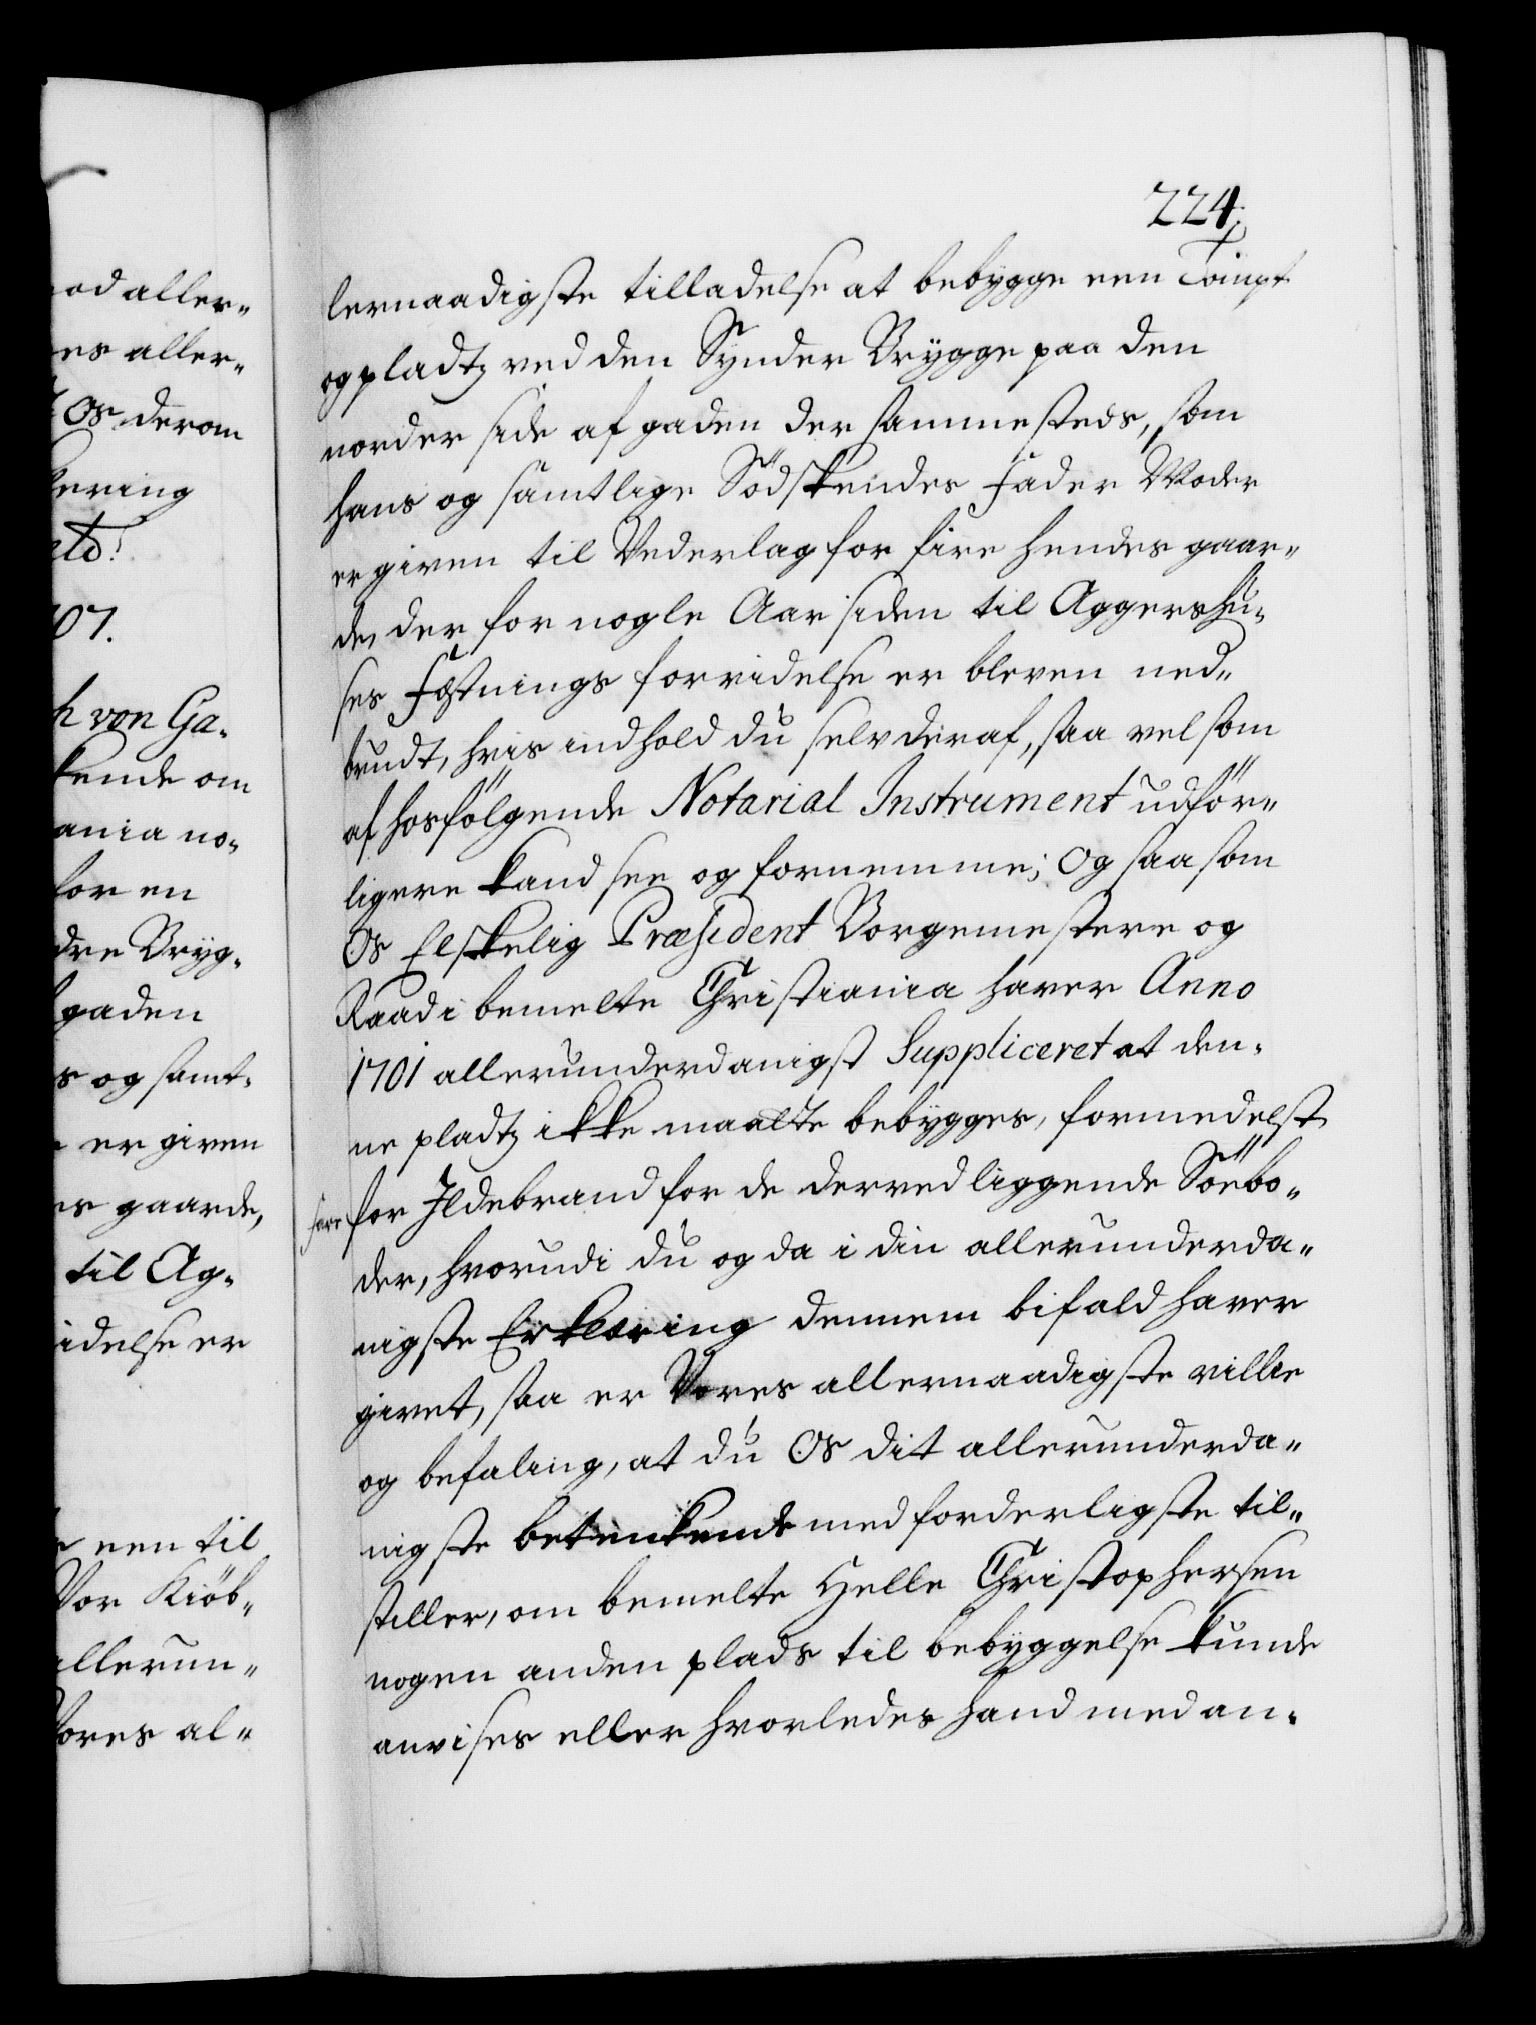 224.
lernaadigste tilladelse at bebygge een Tompt
og pladtz ved den Synder Brygge paa den
norder side af gaden der sammesteds, som
hans og samtlige Södskendes Fader Moder
er given til Vederlag for fire hendes gaar„
de, der for nogle Aar siden til Aggershu„
ses Fæstnings forvidelse er bleven ned„
brudt, hvis indhold du selv deraf, saa vel som
af hosfölgende Notarial Instrument udför„
ligere kand see og fornemme; Og saasom
Os Elskelig Præsident Borgemestere og
Raad i bemelte Christiania haver Anno
1701 allerunderdanigst Suppliceret at den„
ne pladtz ikke maatte bebygges, formedelst
fare for Ildebrand for de derved liggende Söebo„
der, hvorudi du og da i din allerunderda„
nigste Erklæring dennem bifald haver
givet, saa er Vores allernaadigste villie
og befaling, at du Os dit allerunderda„
nigste betenkende med forderligste til„
stiller, om bemelte Helle Christophersen
nogen anden plads til bebyggelse kunde
anvises eller hvorledes hand med an„
od aller„
es aller„
Os derom
ering
07.
h von Ga„
kende om
ania no„
for en
dre Bryg„
gaden
s og samt„
er given
es gaarde,
til Ag„
idelse er
een til
Vor Kiöb„
allerun„
Vores al„